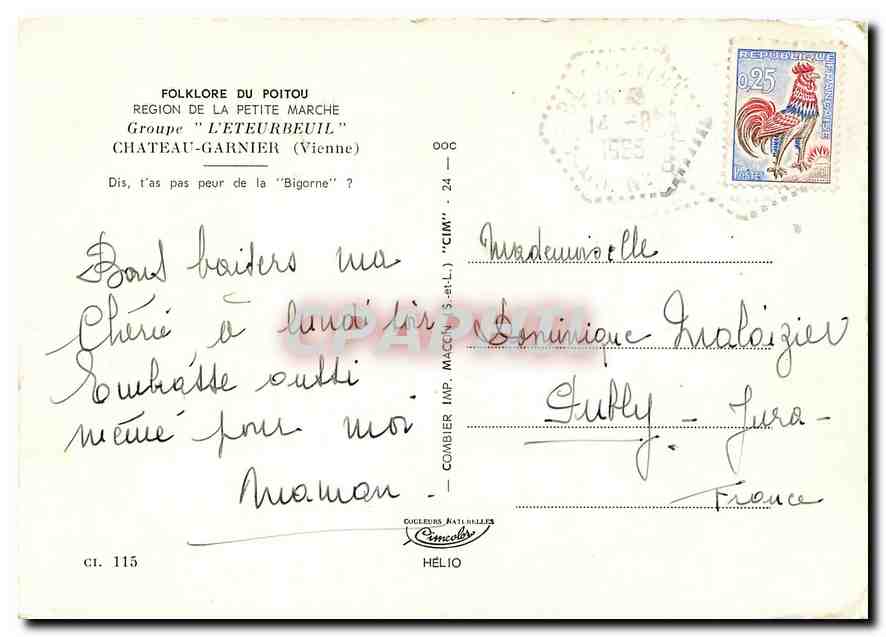 FOLKLORE DU POITOU
REGION DE LA PETITE MARCHE
Groupe "L'ETEURBEUIL"
CHATEAU-GARNIER (Vienne)
Dis, t'as pas peur de la "Bigorne" ?
Bons baisers ma
Chérie à lundi soir
Embrasse aussi
mémé pour moi
Maman.
CI. 115
COMBIER IMP. MACON (S.-et-L.) "CIM" - 24 - OOC
COULEURS NATURELLES
Cimcolor
HÉLIO
REPUBLIQUE FRANÇAISE
0,25
POSTES
18 H
14 -8
Mademoiselle
Dominique Maloizier
Publy - Jura -
France
CPAPHIL